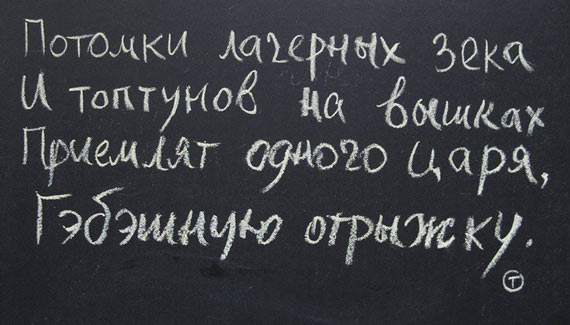 Потомки лагерных зека
И топтунов на вышках
Приемлят одного царя,
Гэбэшную отрыжку.
т